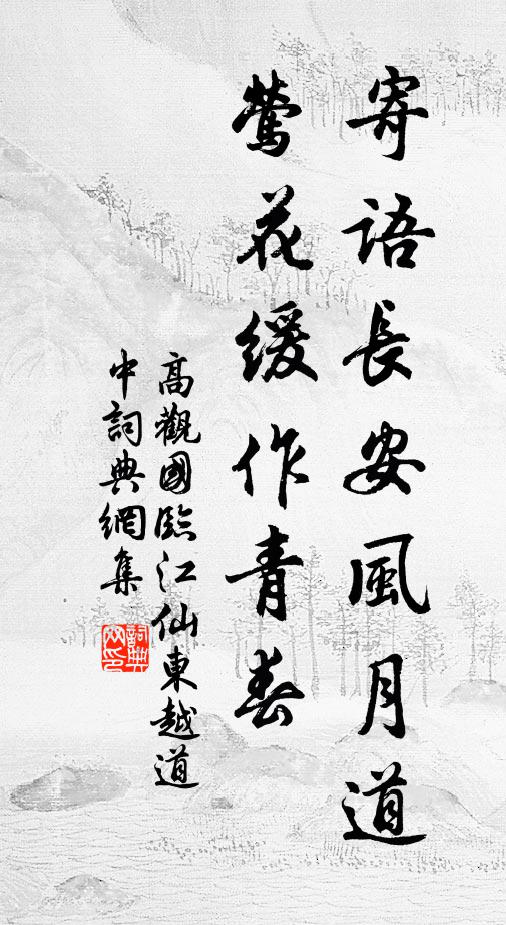 寄語長安風月道
鶯花緩作青春
高觀國臨江仙東越道
中詞典網集
詞典网印